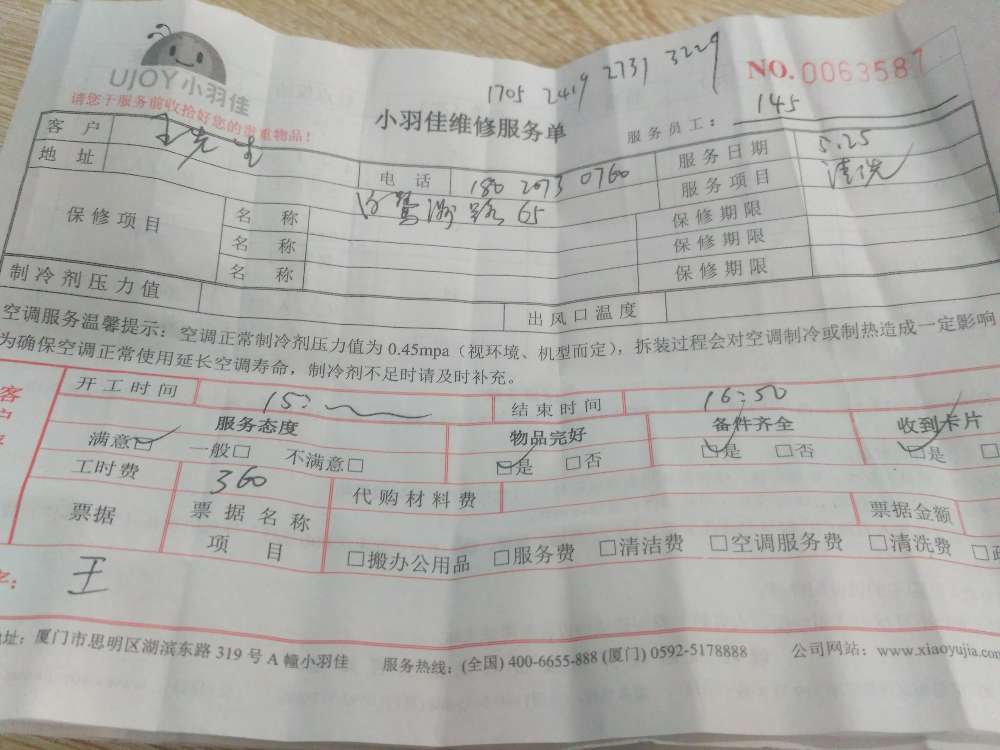 UJOY小羽佳
请您于服务前收拾好您的贵重物品！
1705 2419 2731 3229
NO.0063587
小羽佳维修服务单
服务员工： 145
客户 王先生 服务日期 5.25
地址 电话 180 2073 0760 服务项目 清洗
鹭洲路65
保修项目 名称 保修期限
名称 保修期限
名称 保修期限
制冷剂压力值 出风口温度
空调服务温馨提示：空调正常制冷剂压力值为 0.45mpa（视环境、机型而定），拆装过程会对空调制冷或制热造成一定影响
为确保空调正常使用延长空调寿命，制冷剂不足时请及时补充。
客户
开工时间 15: 结束时间 16:50
服务态度 物品完好 备件齐全 收到卡片
满意☑ 一般□ 不满意□ ☑是 □否 ☑是 □否 ☑是
工时费 360 代购材料费
票据 票据名称 票据金额
项目 □搬办公用品 □服务费 □清洁费 □空调服务费 □清洗费
字： 王
地址：厦门市思明区湖滨东路 319 号 A 幢小羽佳 服务热线：(全国) 400-6655-888 (厦门) 0592-5178888 公司网站：www.xiaoyujia.com